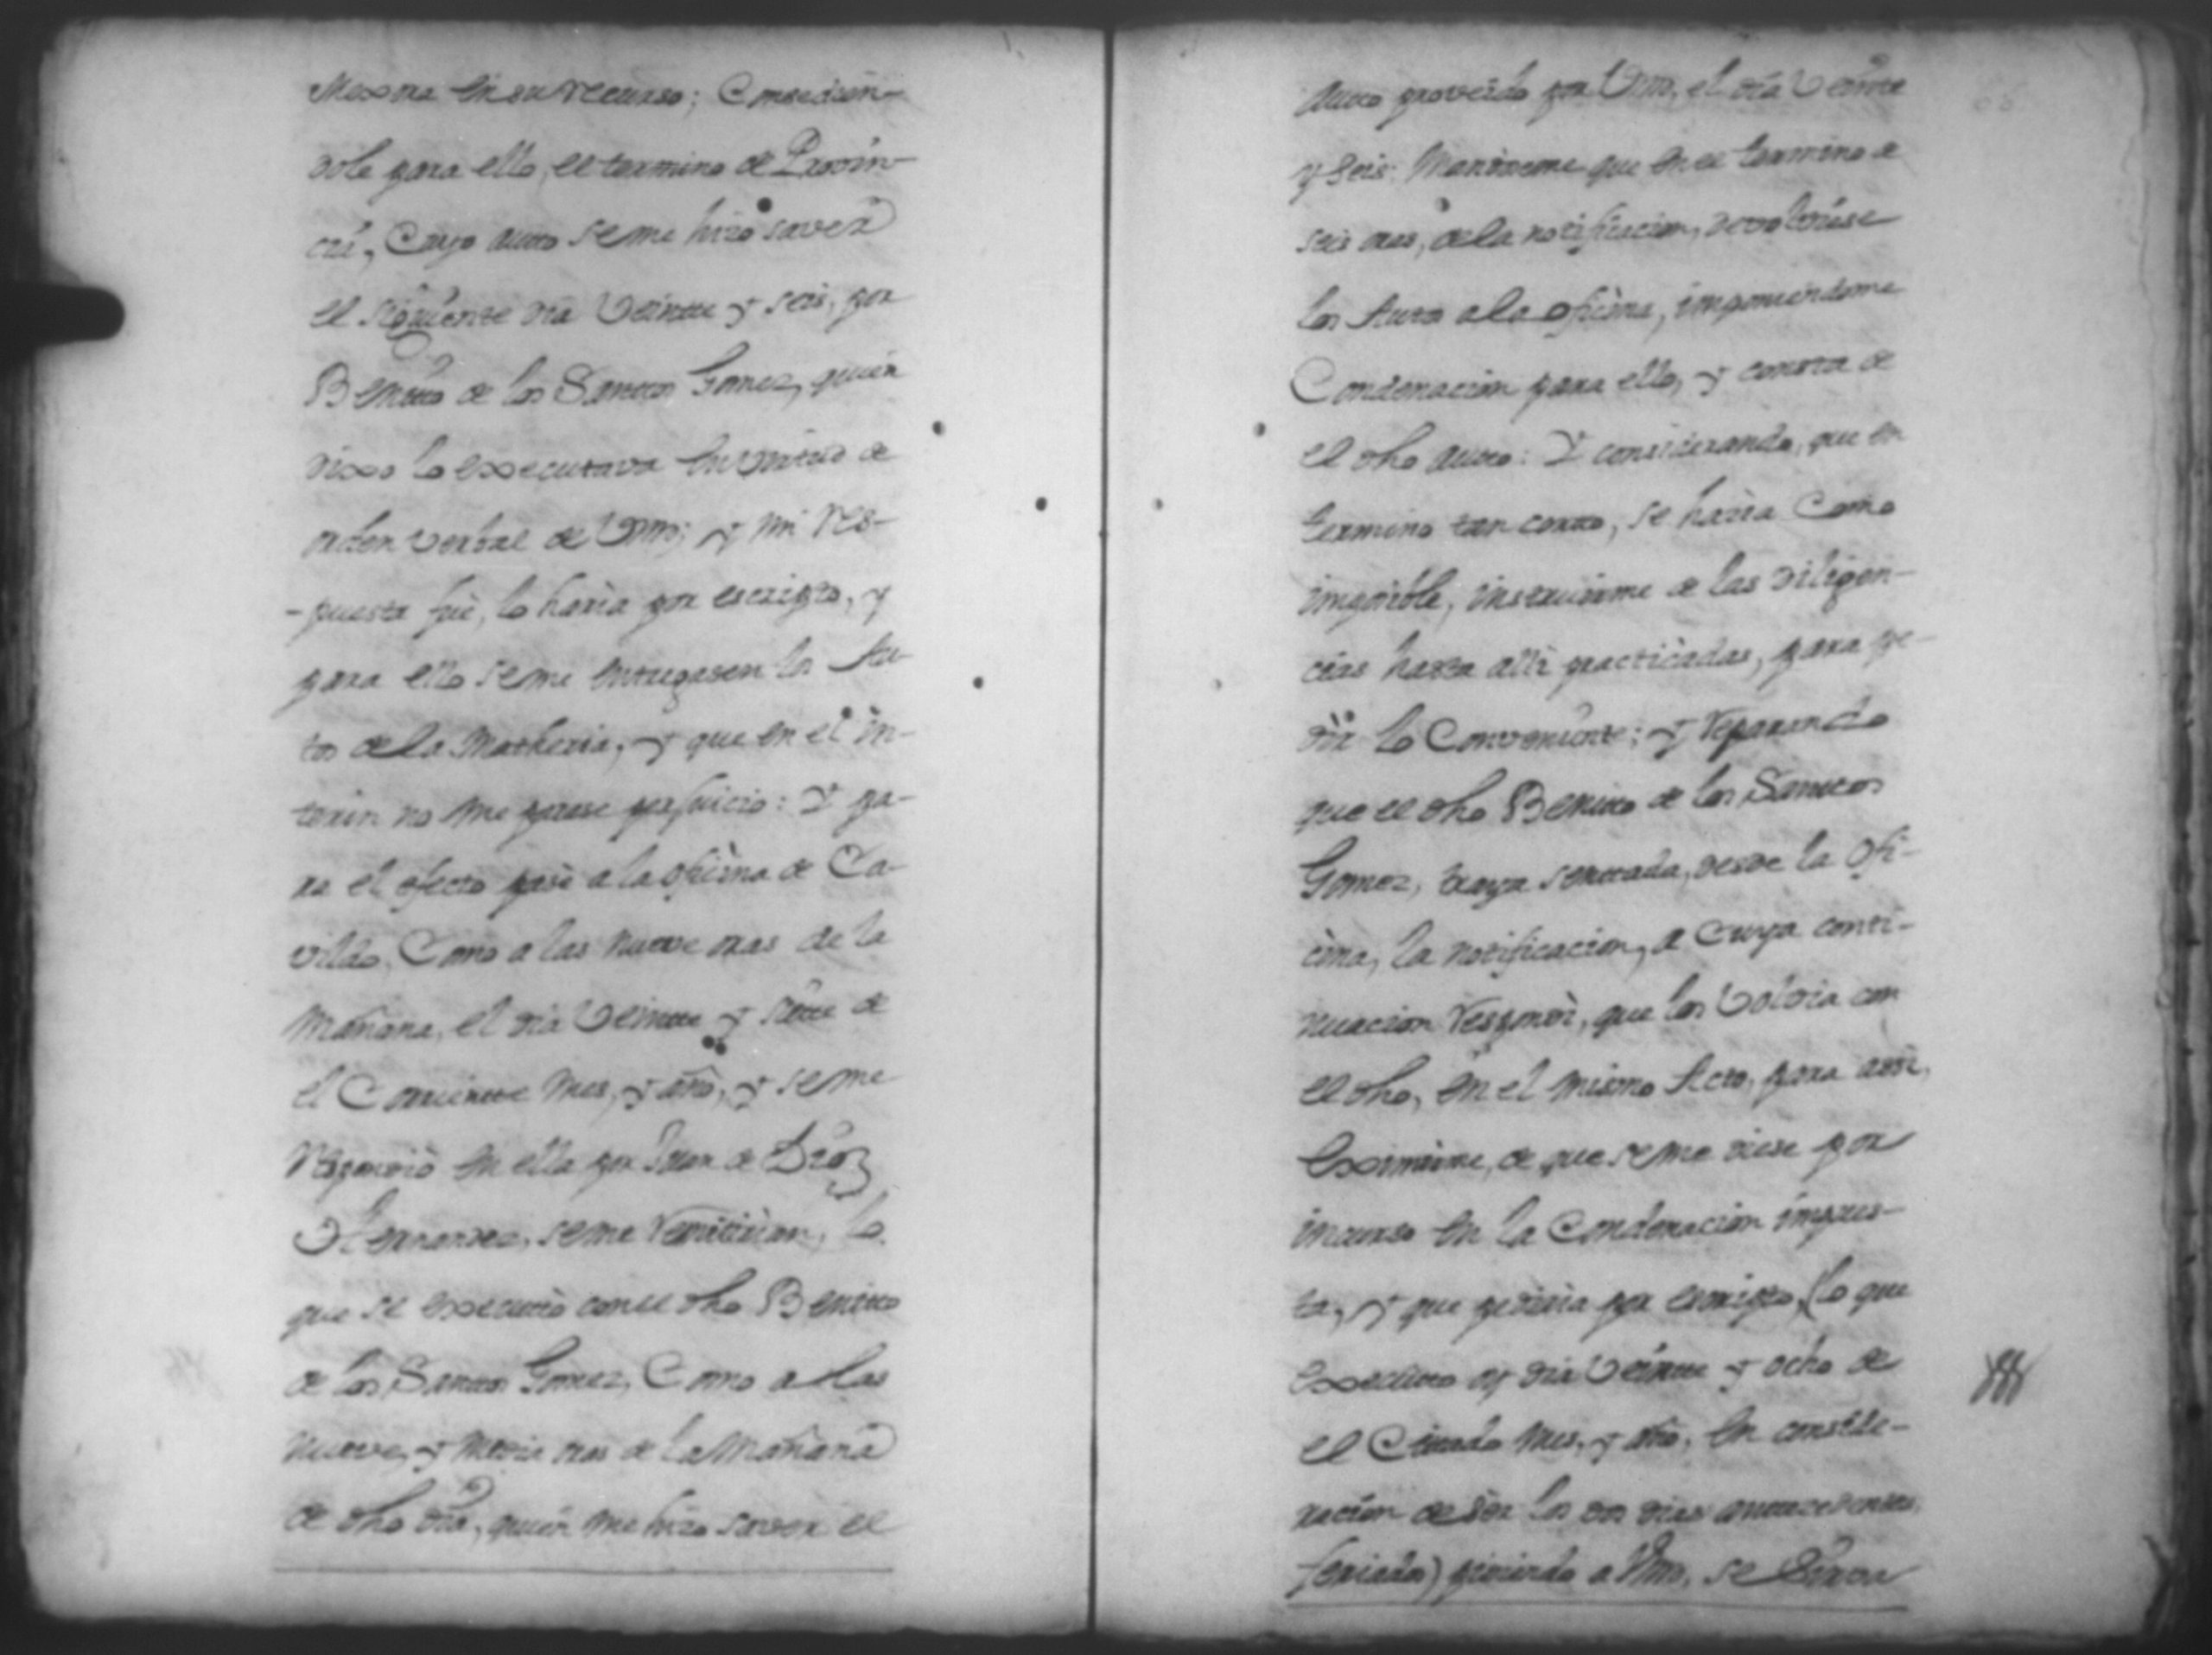 Mexora en su recurso; Consedien-
dole para ello, el termino de Provin-
cia, Cuyo autto se me hizo saver
el siguiente dia Veintte y seis, por
Benitto de los Santtos Gomez, quien
dixo lo executava en virtud de
orden verbal de Vm; y mi res-
-puesta fuè, lo haria por escripto, y
para ello se me entregasen los Au-
tos de la Matheria, y que en el in-
terin no me parase perjuicio: Y pa-
ra el efecto pasè a la oficina de Ca-
vildo, Como a las nueve oras de la
mañana, el dia Veintte y siette de
el Corriente mes, y año, y se me
respondiò en ella por Juan de Dios
Hernandez, se me remitirian, lo
que se executò con el dho Benitto
de los Santtos Gomez, Como a las
nueve, y media oras de la Mañana
de dho dia, quien me hizo saver el
Autto proveido por Vm, el dia Veintte
y seis: Mandneme que en el termino de
seis oras, de la notificacion, devolviese
los Autos a la oficina, imponiendome
Condenacion para ello, y consta de
el dho autto: Y considerando, que en
termino tan corto, se haria Como
imposible, instruirme de las diligen-
cias hasta alli practicadas, para pe-
dir lo Conveniente; y reparando
que el dho Benitto de los Santtos
Gomez, traya senttada, desde la ofi-
cina, la notificacion, a cuya conti-
nuacion respondi, que los volvia con
el dho, en el mismo Acto, para assi,
eximirme, de que se me diese por
incurso en la Condenacion impues-
ta, y que pediria por escripto, (lo que
executto oy dia Veintte y ocho de
el Cittado mes, y año, en conside-
racion de ser los dos dias anttecedentes
feriados) pidiendo a Vm, se sirva